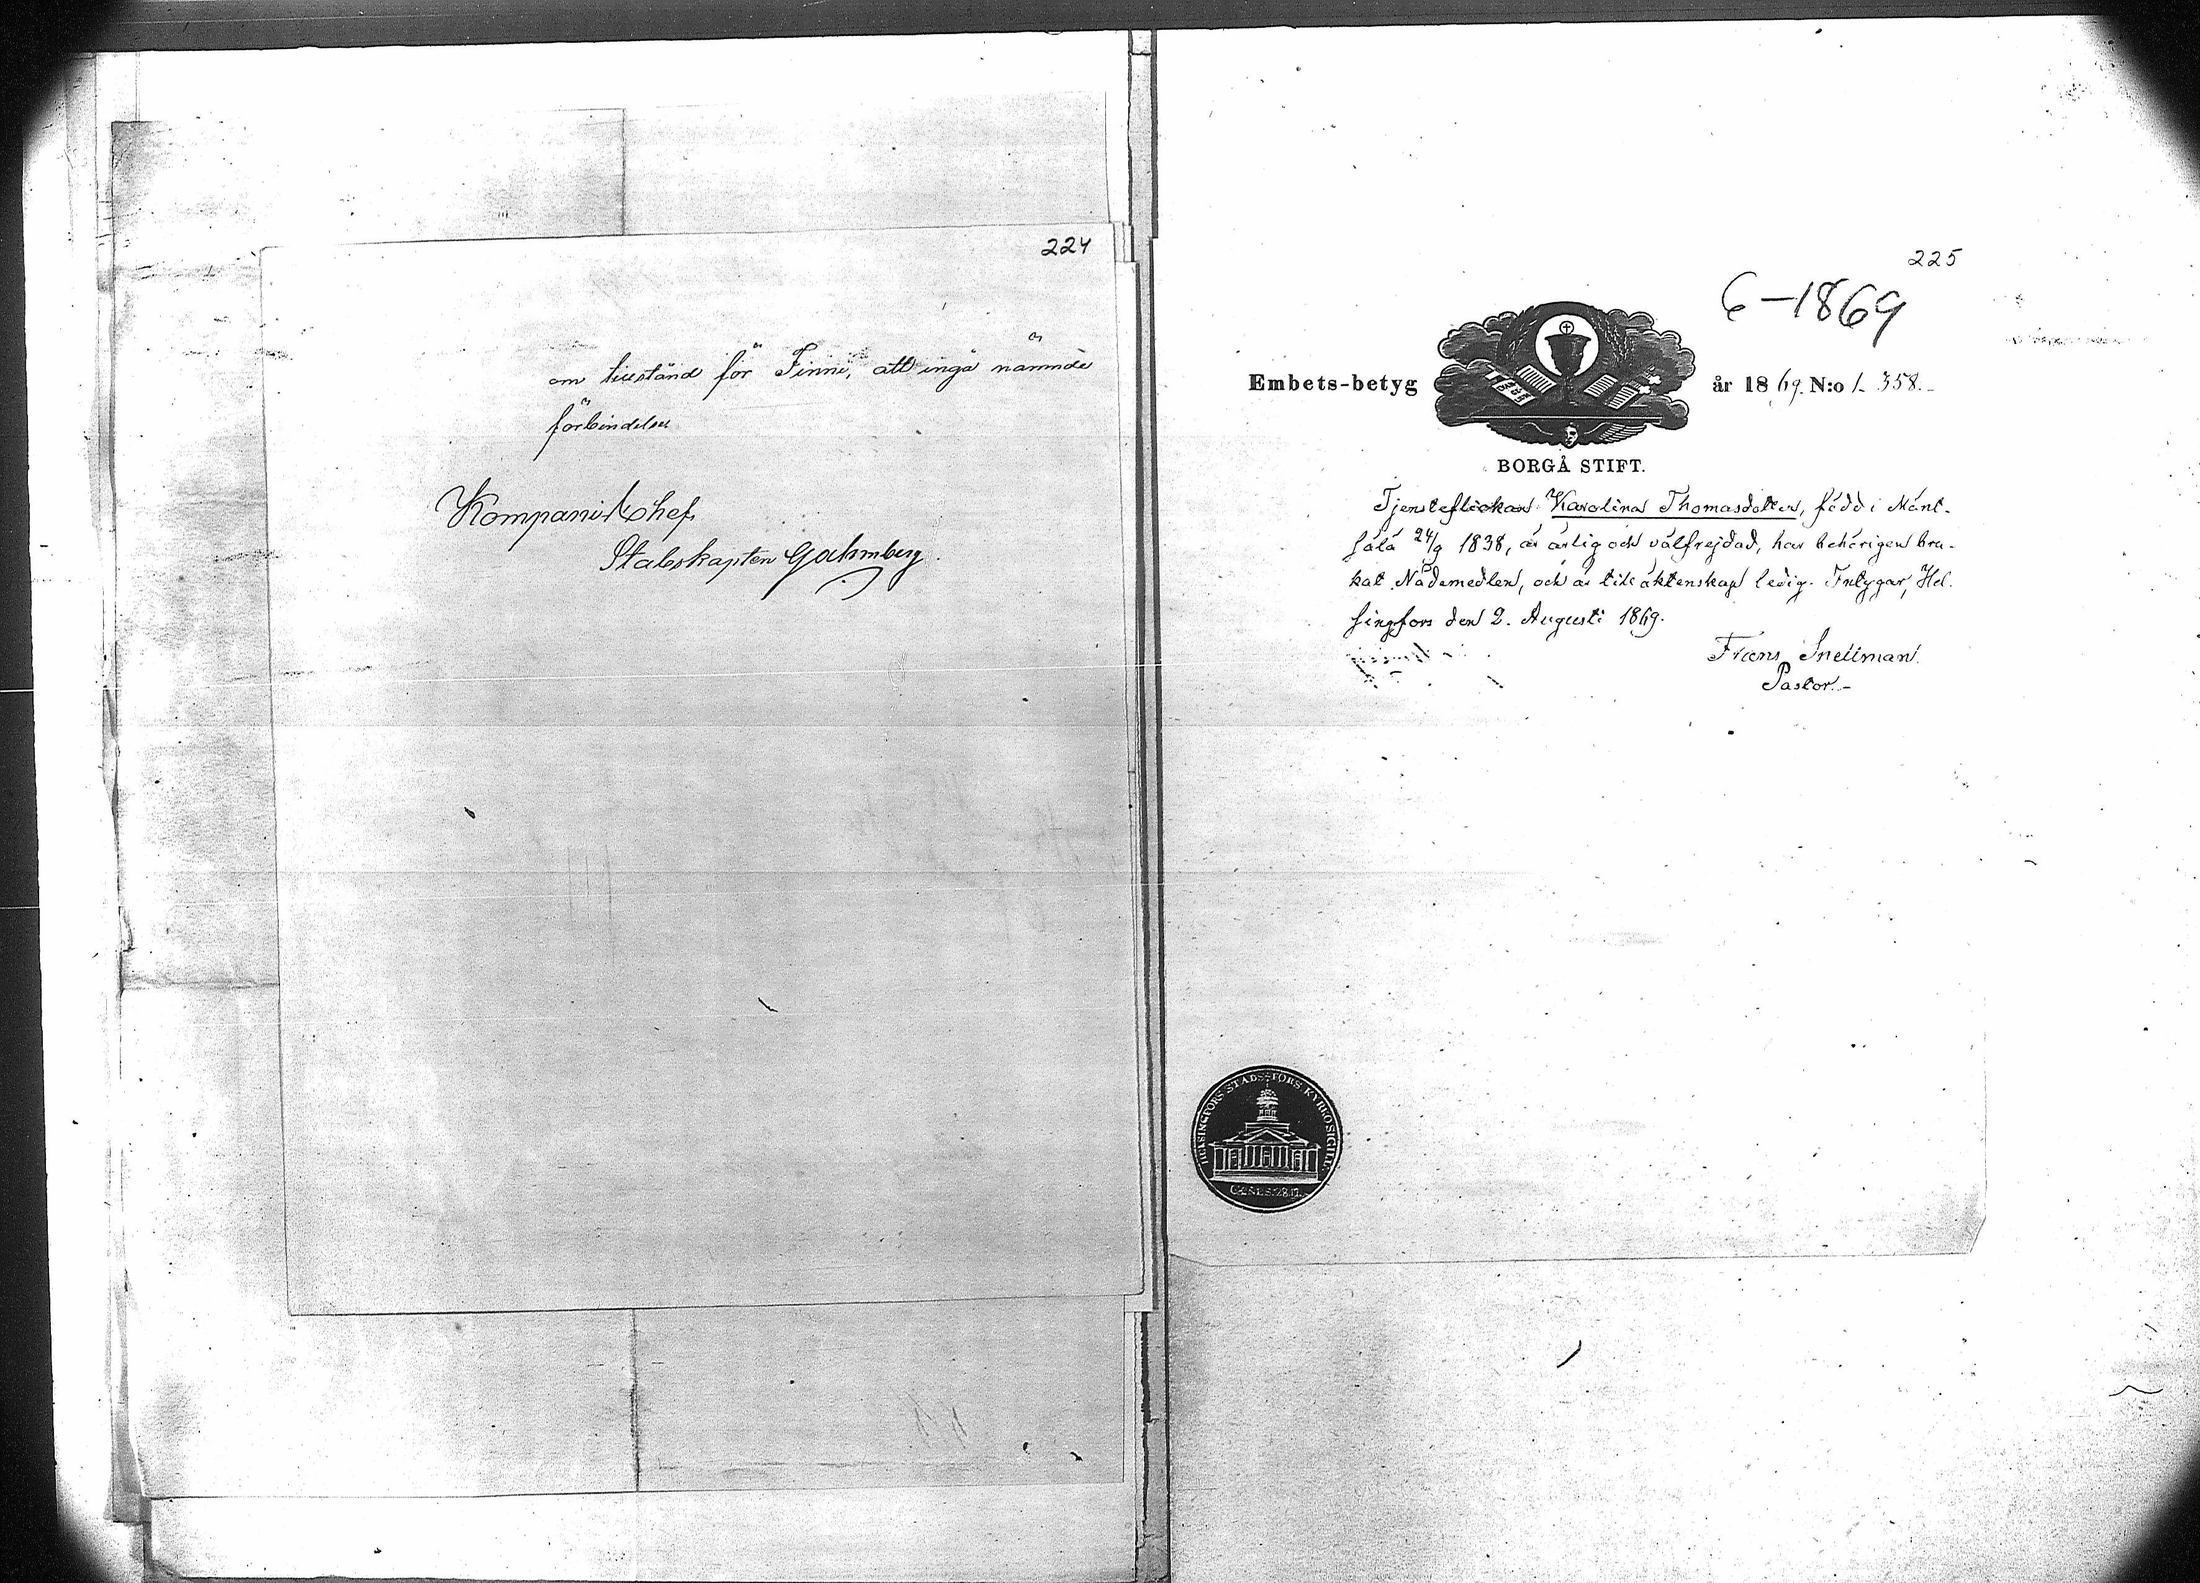 224
om tillstånd för Finne, att ingå nämnde
förbindelse
Kompani Chef,
Stabskapten Gahmberg.
225
6-1869
Embets-betyg år 1869. N:o 1358.-
BORGÅ STIFT.
Tjensteflickan Karolina Thomasdotter, född i Mänt-
sälä 24/9 1838, är ärlig och välfrejdad, har behörigen bru-
kat Nådemedlen, och är till äktenskap ledig. Intygar, Hel-
singfors den 2. Augusti 1869.
Frans Snellman.
Pastor.-
HELSINGFORS STADS FÖRS. KYRKOSIGILL.